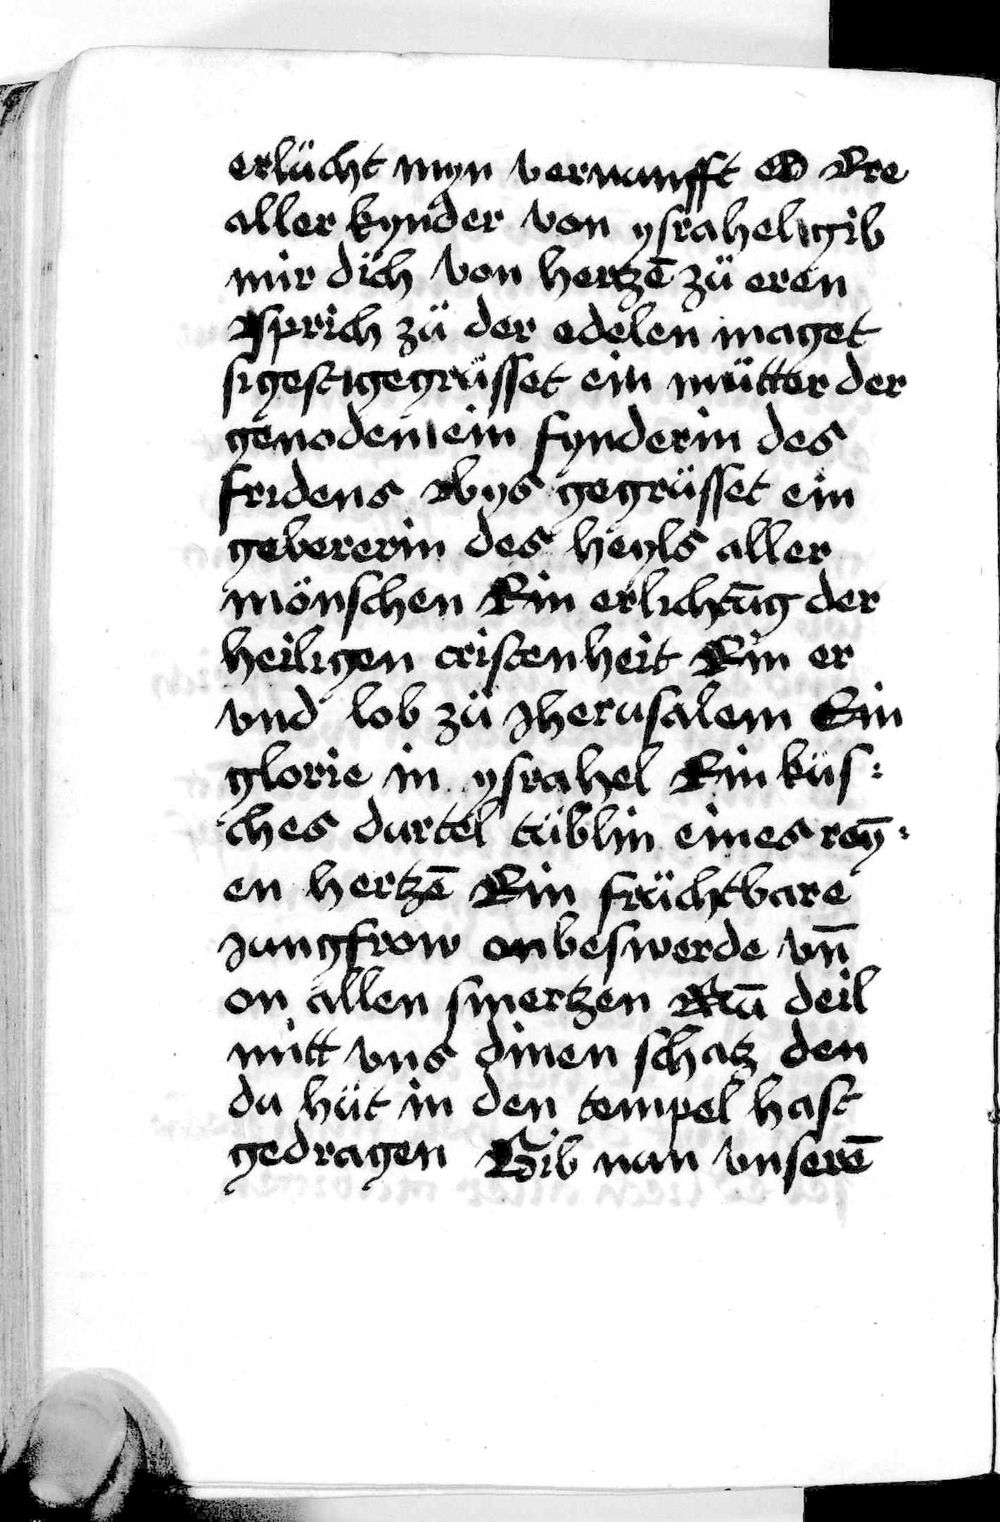 erlücht myn vernunfft O Ere
aller kynder von ysrahel gib
mir dich von hertzē zü eren
Sprich zü der edelen maget
sigest gegrüsset ein mütter der
genoden ein fynderin des
fridens Bys gegrüsset ein
gebererin des heyls aller
mönschen Ein erlichtūg der
heiligen cristenheit Ein er
vnd lob zü Jherusalem Ein
glorie in ysrahel Ein küs:
ches durtel tüblin eines reȳ:
en hertzē Ein früchtbare
Jungfrow on beswerde vn̄
on allen smertzen Nū deil
mitt vns dinen schatz den
du hüt in den tempel hast
gedragen Gib nun vnserē